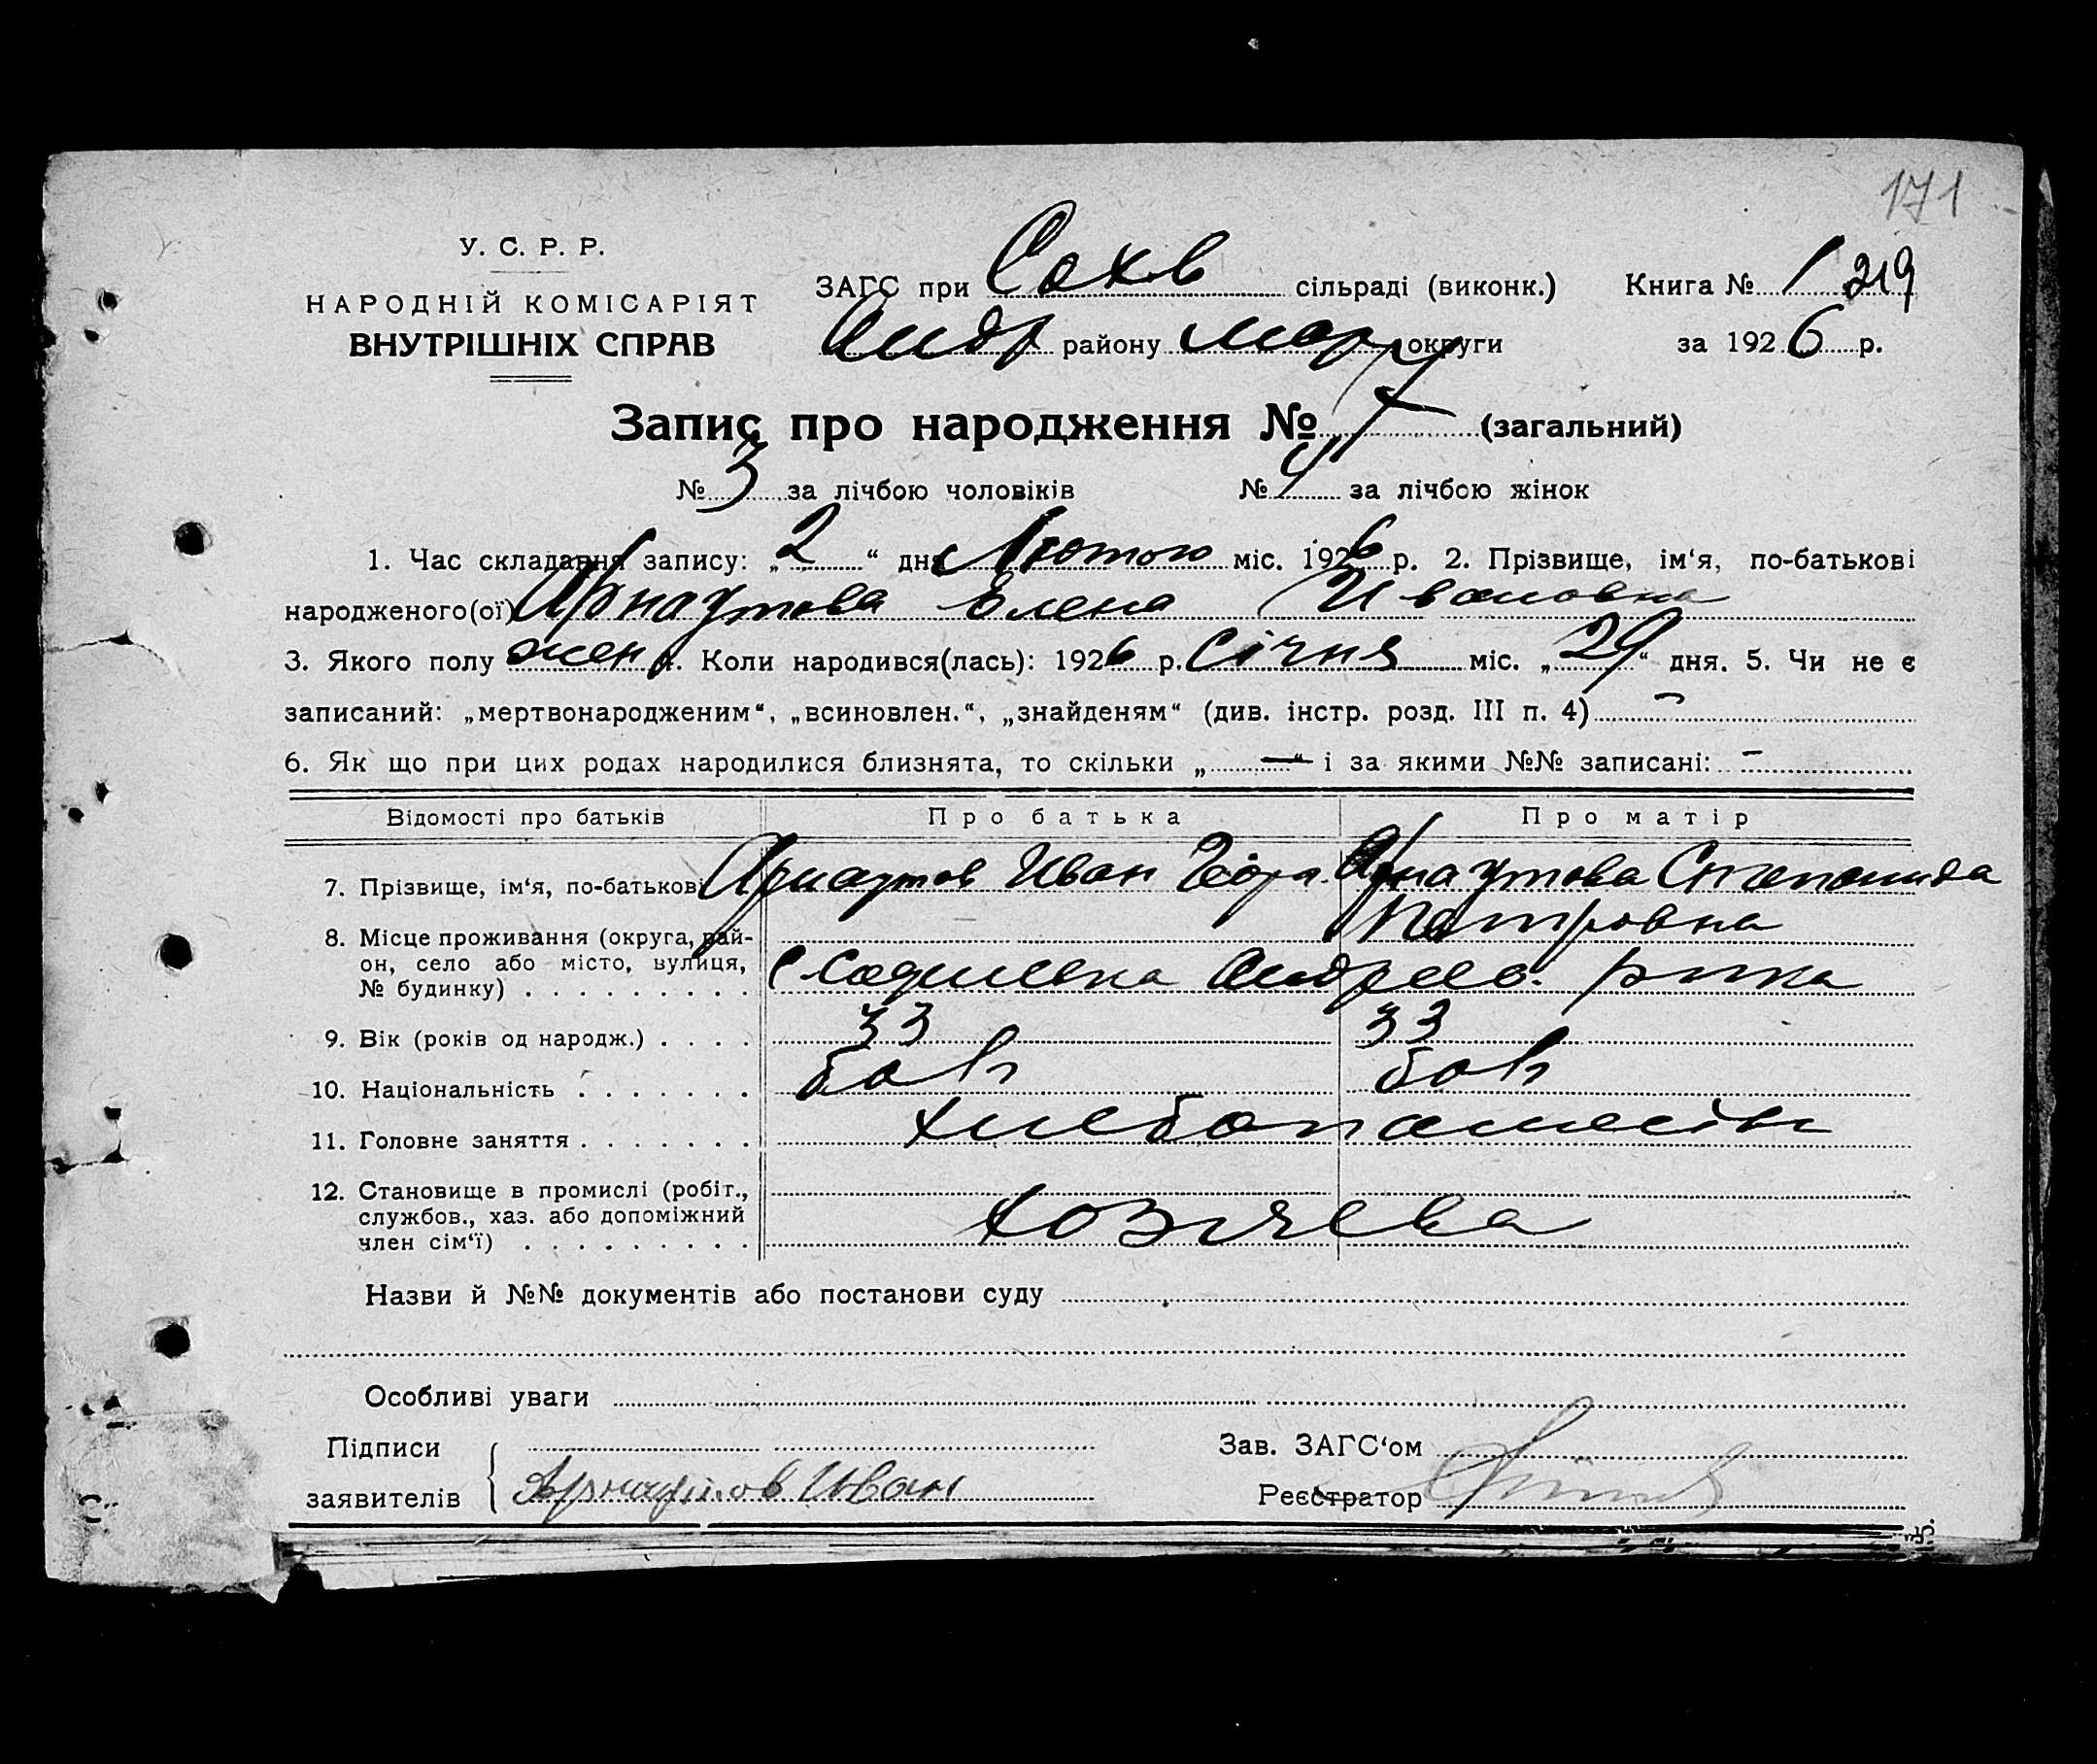 171
У. С. Р. Р.
НАРОДНІЙ КОМІСАРІЯТ
ВНУТРІШНІХ СПРАВ
ЗАГС при Сахв сільраді (виконк.) Книга № 1 219
Андр району Мар округи за 1926 р.
Запис про народження № 7 (загальний)
№ 3 за лічбою чоловіків № 4 за лічбою жінок
1. Час складання запису: „2“ дня Лютого міс. 1926 р. 2. Прізвище, ім‘я, по-батькові
народженого(ої) Арнаутова Елена Ивановна
3. Якого полу жен 4. Коли народився(лась): 1926 р. Січня міс. „29“ дня. 5. Чи не є
записаний: „мертвонародженим“, „всиновлен.“, „знайденям“ (див. інстр. розд. III п. 4) –
6. Як що при цих родах народилися близнята, то скільки „—“ і за якими №№ записані: –
Відомості про батьків Про батька Про матір
7. Прізвище, ім‘я, по-батькові Арнаутов Иван Геор. Арнаутова Степанида
Петровна
8. Місце проживання (округа, рай-
он, село або місто, вулиця,
№ будинку) Андреев.
9. Вік (років од народж.) 33 33
10. Національність бол болг
11. Головне заняття
12. Становище в промислі (робіт.,
службов., хаз. або допоміжний
член сім‘ї)
Назви й №№ документів або постанови суду
Особливі уваги
Підписи
заявителів Арнаутов Иван
Зав. ЗАГС‘ом
Реєстратор